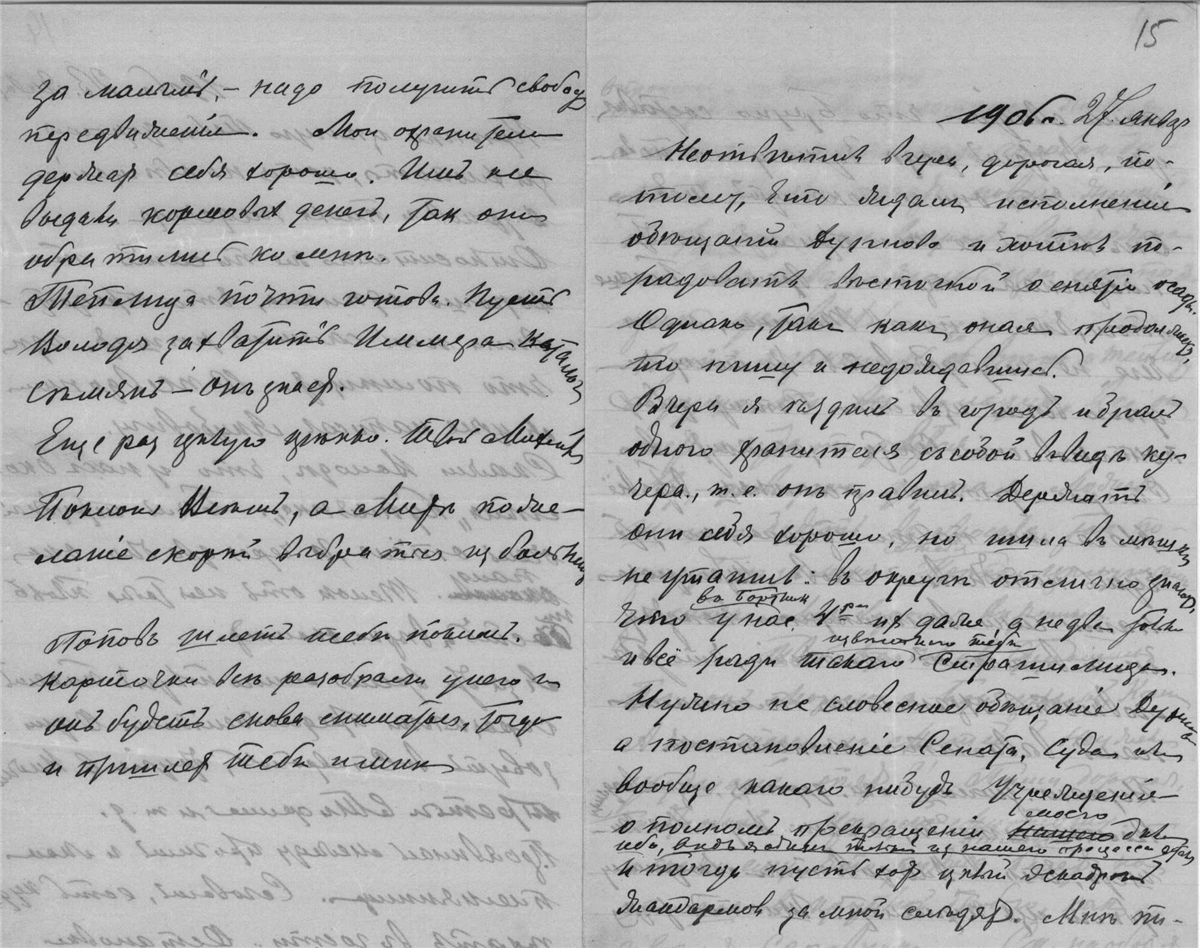 за мальчикъ, – надо получить свободу
передвиженія. Мои охранители
держатъ себя хорошо. Имъ не
выдали кормовых денегъ, такъ они
обратились ко мнѣ.
Теплица почти готова. Пусть
Володя захватитъ Иммера каталогъ
сѣмянъ – онъ знаетъ.
Еще раз цѣлую крѣпко. Твой
Поклонъ, а Мирѣ поже-
ланіе скорѣй выбраться из больницы
Поповъ шлетъ тебѣ поклонъ.
Карточки всѣ разобрали у него и
онъ будетъ снова сниматься, тогда
и пришлетъ тебѣ и мнѣ
15
1906 г. 27 январ
Не отвѣтилъ вчера, дорогая, по-
тому, что ждалъ исполненія
обѣщаній Дурново и хотѣлъ по-
радовать вѣсточкой о снятіи осады.
Однако, такъ какъ оная продолжается,
то пишу и не дождавшись.
Вчера я ѣздилъ въ городъ и бралъ
одного хранителя съ собой въ видѣ ку-
чера, т. е. онъ правилъ. Держатъ
они себя хорошо, но шила въ мѣшкѣ
не утаишь: въ округѣ отлично знаютъ,
въ Борткѣ
что у насъ и далѣе
извѣстнаго тебѣ
и всё ради такого Страшилища.
Нужно не словесное обѣщаніе Дурново
а постановленіе Сената, Суда или
вообще какого нибудь Учрежденія
моего
о полномъ прекращеніи нашего дѣла
ибо, вѣдь я одинъ только из нашего процесса
и тогда пусть хоть цѣлый эскадронъ
жандармов за мной слѣдятъ. Мнѣ ти-